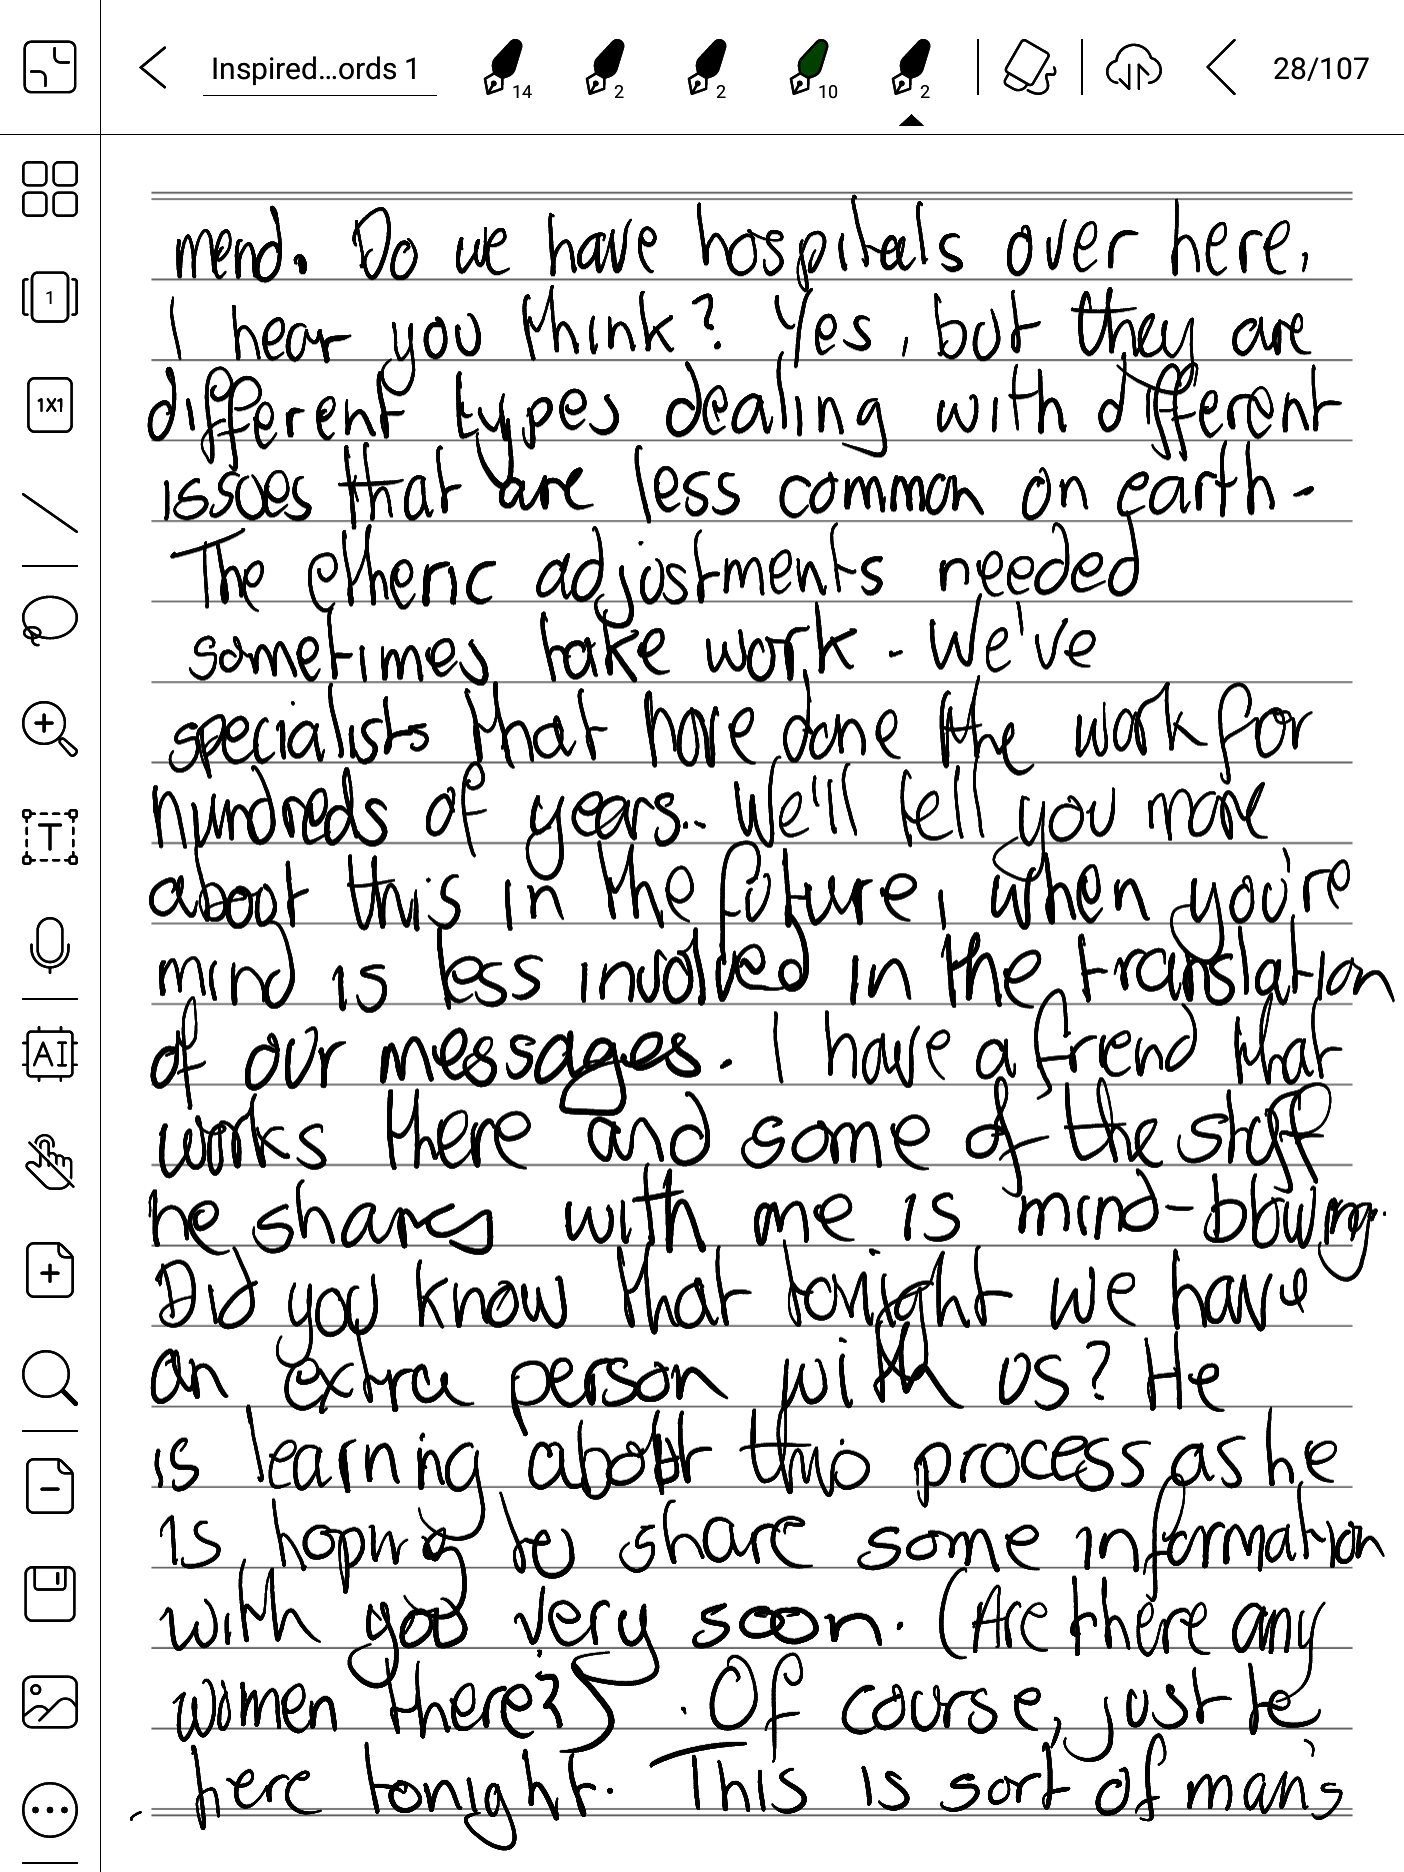 Inspired...ords 1
14
2
2
10
2
28/107
1
1X1
T
AI
mend. Do we have hospitals over here,
I hear you think? Yes, but they are
different types dealing with different
issues that are less common on earth -
The etheric adjustments needed
sometimes take work - We've
specialists that have done the work for
hundreds of years.. We'll tell you more
about this in the future, when you're
mind is less involved in the translation
of our messages. I have a friend that
works there and some of the stuff
he shares with me is mind-blowing.
Did you know that tonight we have
an extra person with us? He
is learning about this process as he
is hoping to share some information
with you very soon. (Are there any
women there?) . Of course, just
here tonight. This is sort of man's